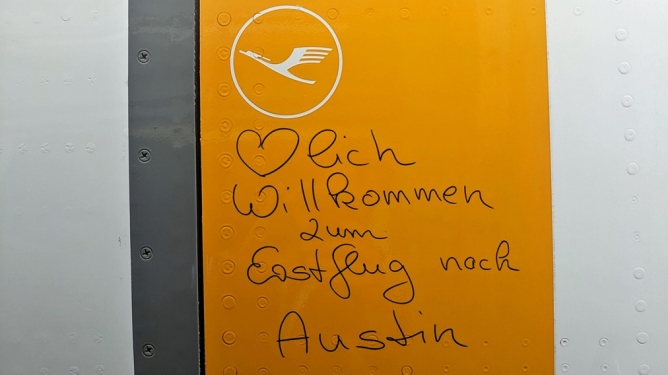 ♡lich
Willkommen
zum
Erstflug nach
Austin